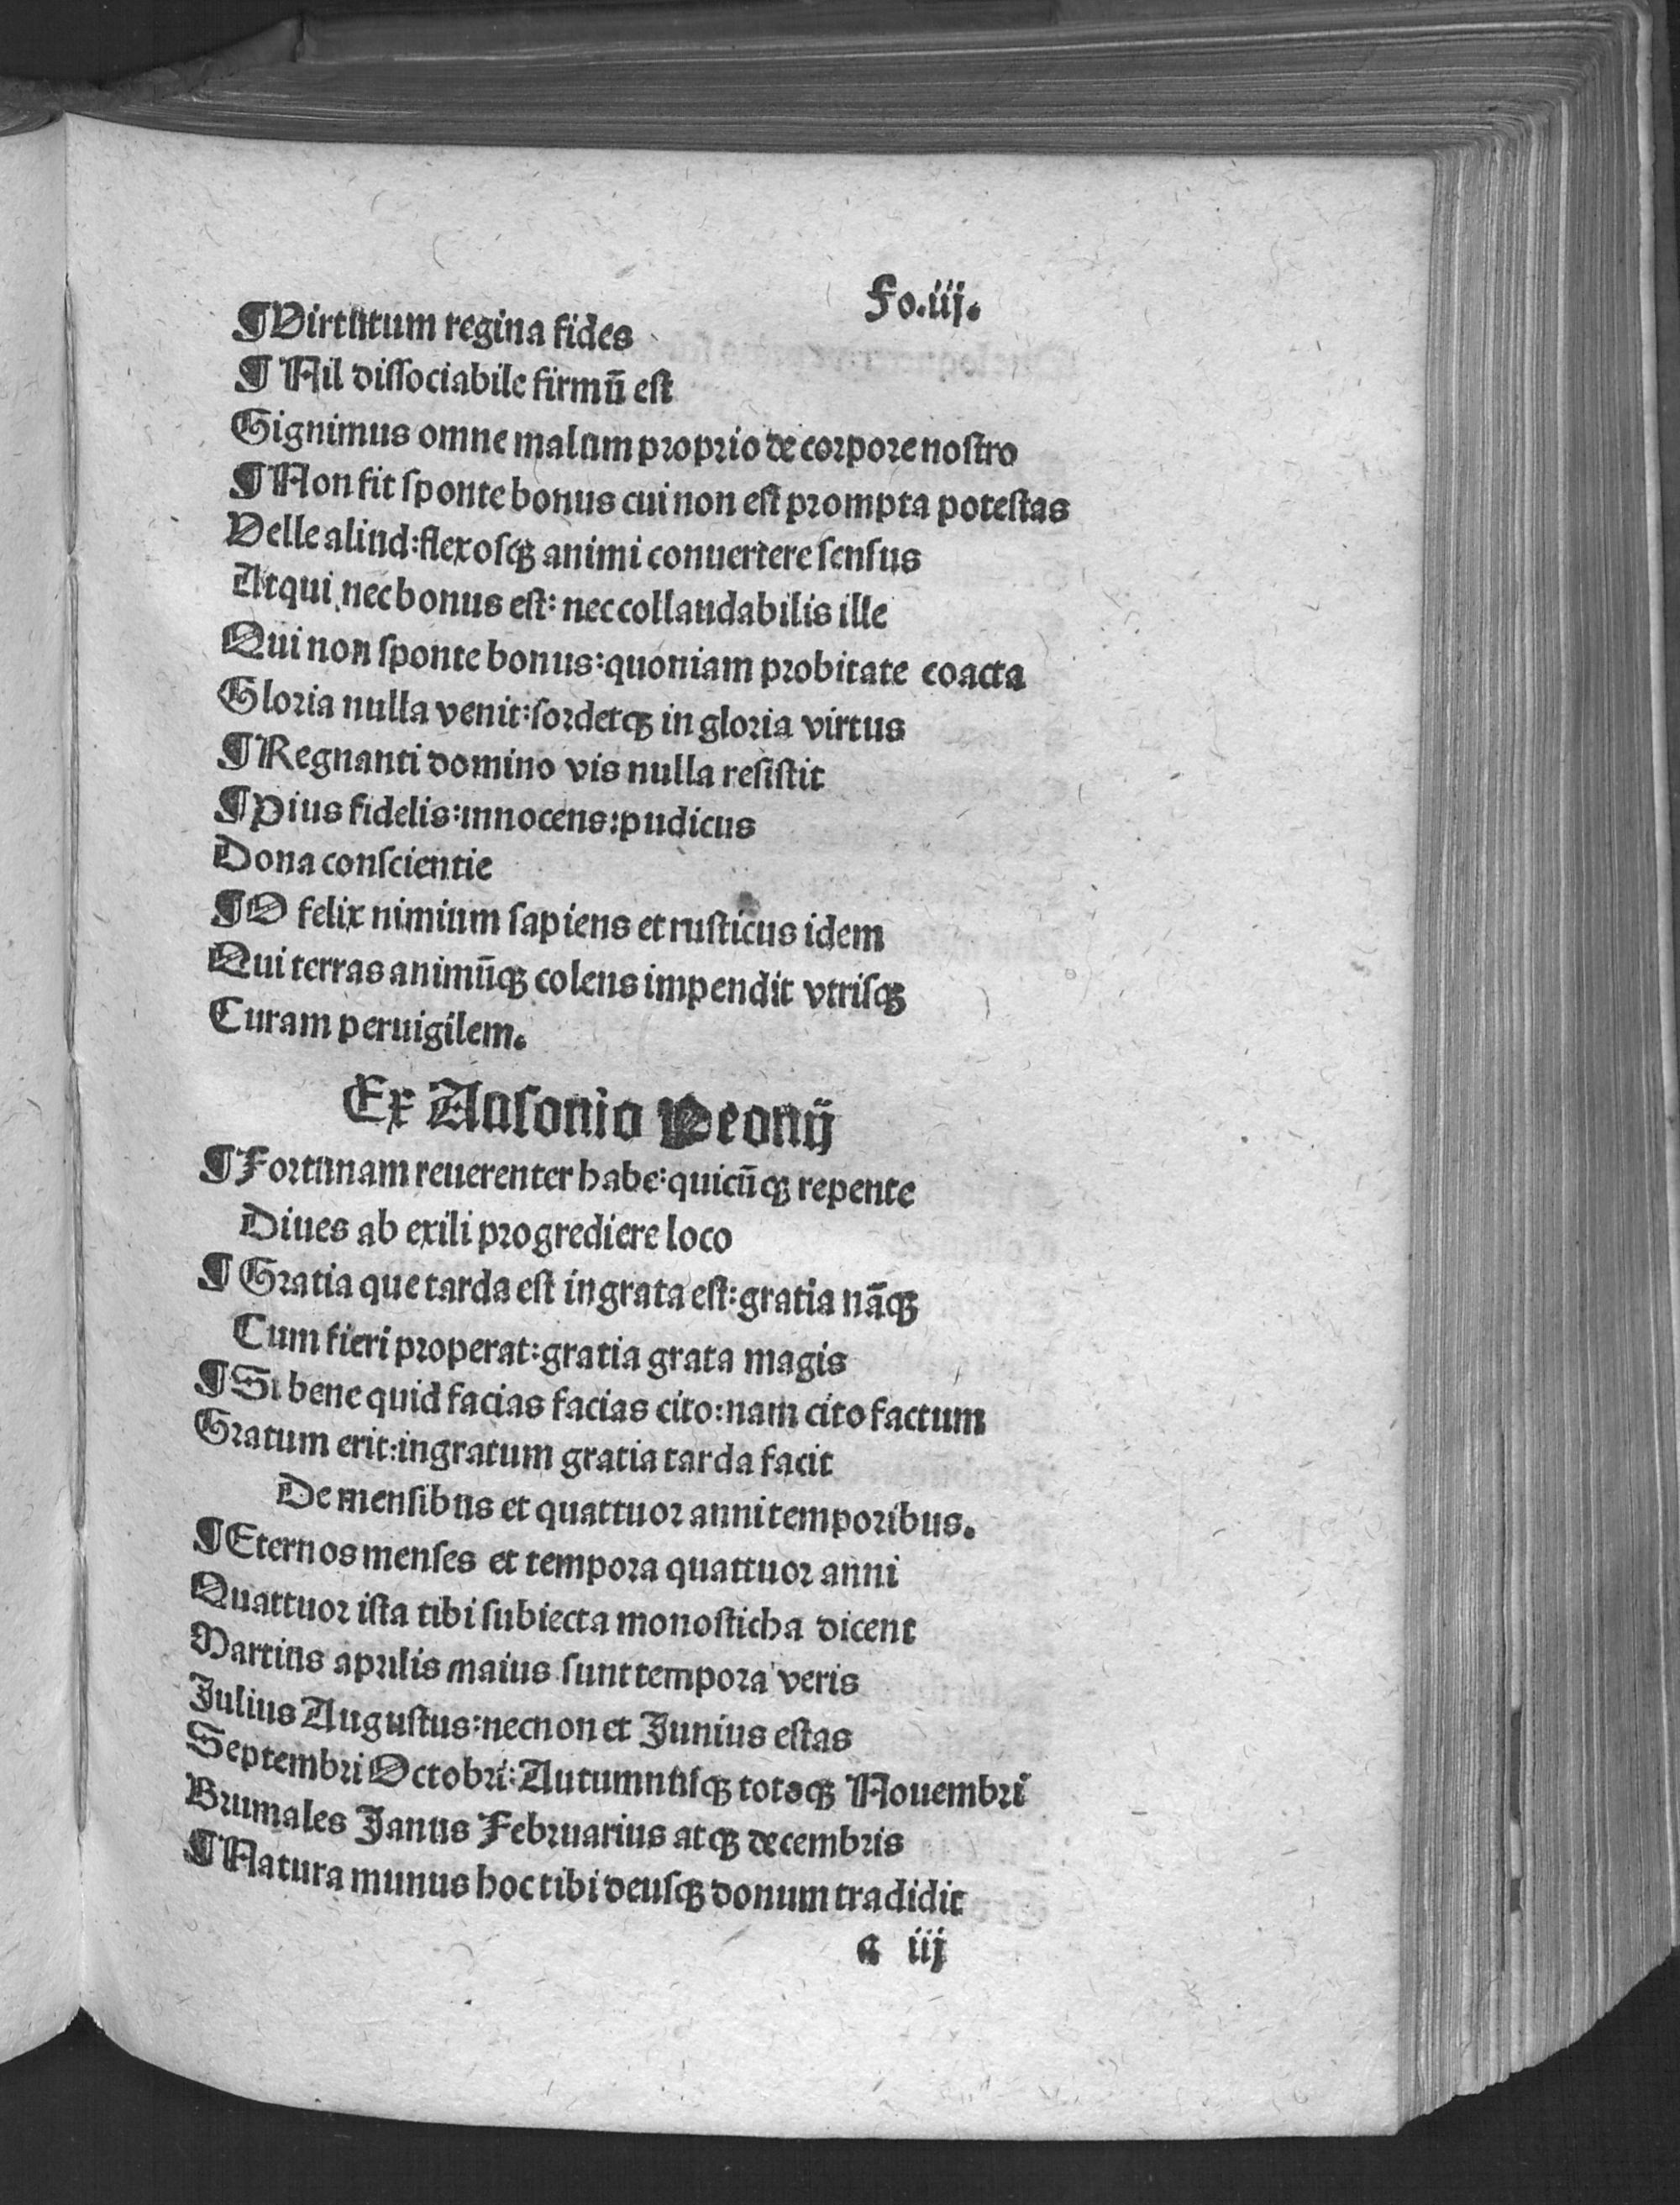 Fo.iij.
¶Virtutum regina fides
¶Nil dissociabile firmū est
Gignimus omne malum proprio de corpore nostro
¶Non fit sponte bonus cui non est prompta potestas
Velle aliud:flexosqꝫ animi conuertere sensus
Atqui nec bonus est: nec collaudabilis ille
Qui non sponte bonus:quoniam probitate coacta
Gloria nulla venit:sordetqꝫ in gloria virtus
¶Regnanti domino vis nulla resistit
¶Pius fidelis:innocens:pudicus
Dona conscientie
¶O felix nimium sapiens et rusticus idem
Qui terras animūqꝫ colens impendit vtrisqꝫ
Curam peruigilem.
Ex Ausonio Peonij
¶Fortunam reuerenter habe:quicūqꝫ repente
Diues ab exili progrediere loco
¶Gratia que tarda est ingrata est:gratia nāqꝫ
Cum fieri properat:gratia grata magis
¶Si bene quid facias facias cito:nam cito factum
Gratum erit:ingratum gratia tarda facit
De mensibus et quattuor anni temporibus.
¶Eternos menses et tempora quattuor anni
Quattuor ista tibi subiecta monosticha dicent
Martius aprilis maius sunt tempora veris
Julius Augustus:necnon et Junius estas
Septembri Octobri:Autumnusqꝫ totoqꝫ Nouembri
Brumales Janus Februarius atqꝫ decembris
¶Natura munus hoc tibi deusqꝫ donum tradidit
a iij